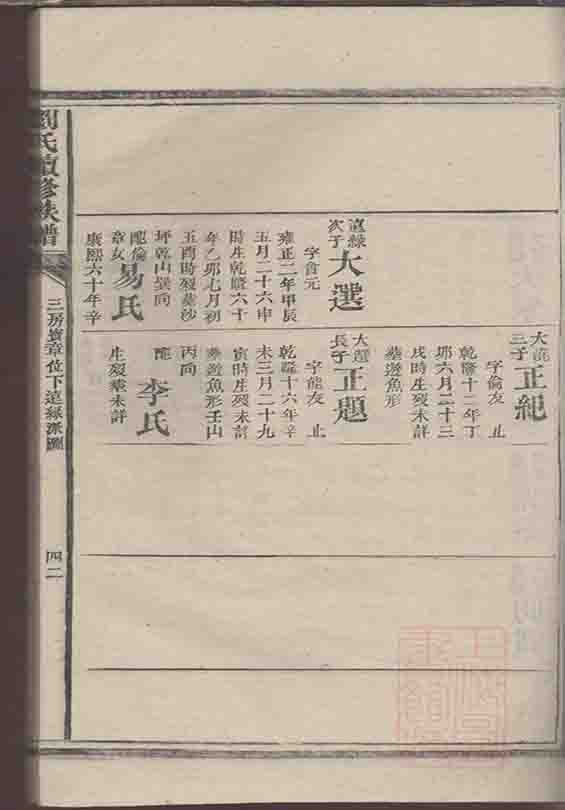 遠緑
次子
大選
字食元
雍正二年甲辰
五月二十六申
時生乾隆六十
年乙卯七月初
五酉時歿葬沙
坪乾山巽向
配倫
章女
易氏
康熙六十年辛
大
三子
正紀
字倫友 止
乾隆十二年丁
卯六月二十三
戌時生歿未詳
葬遊魚形
大選
長子
正題
字能友 止
乾隆十六年辛
未三月二十九
寅時生歿未詳
葬遊魚形壬山
丙向
配
李氏
生歿葬未詳
劉氏續修族譜
三房寶章位下遠緑派圖
四二